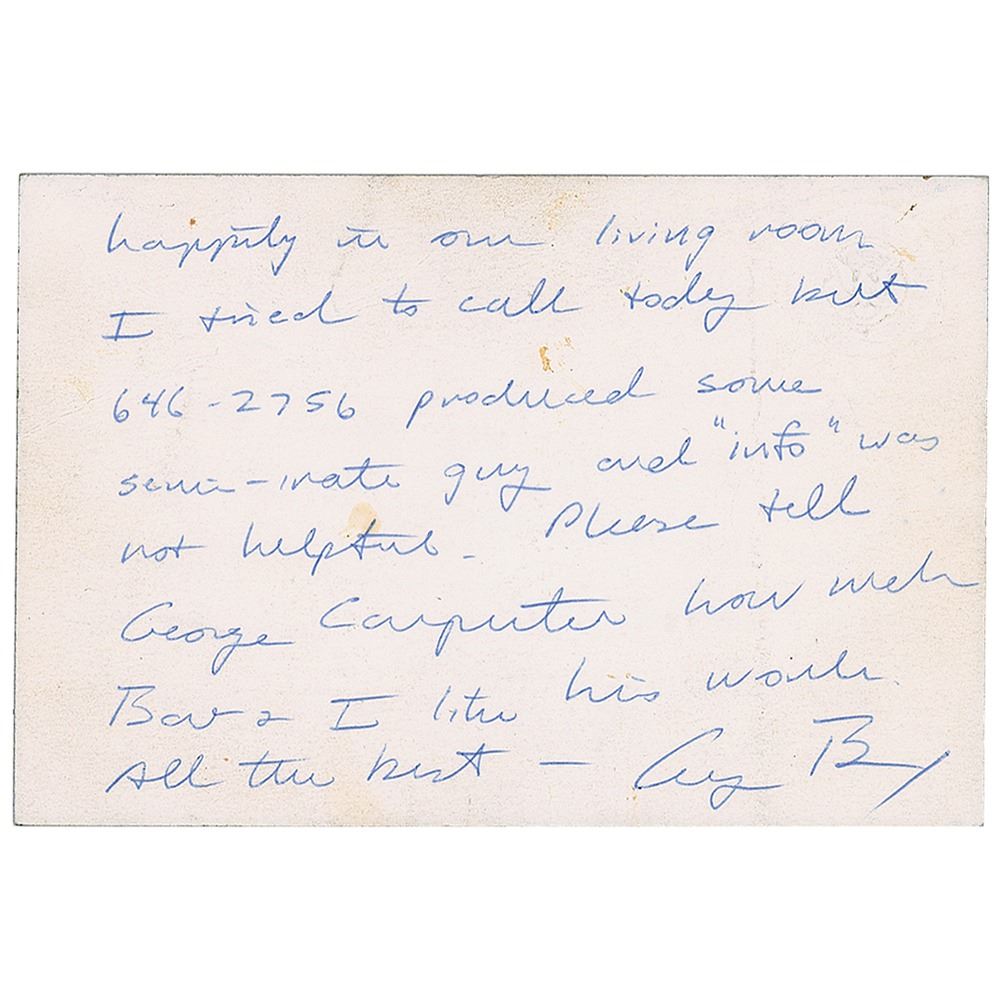 happily in our living room
I tried to call today but
646-2756 produced some
semi-irate guy and "info" was
not helpful. Please tell
George Carpenter how much
Bar & I like his work.
All the best —